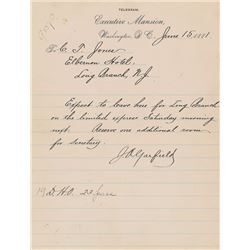 TELEGRAM.
Executive Mansion,
Washington, D. C. June 15, 1881
To C. T. Jones
Elberon Hotel
Long Branch, N.J.
Expect to leave here for Long Branch
on the limited express Saturday morning
next. Reserve one additional room
for secretary.
J. A. Garfield
19 D. H. O.